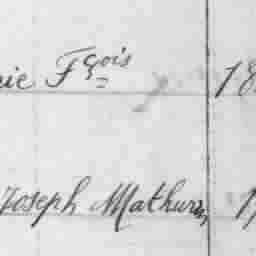 rie Fçois 18
Joseph Mathurin 1